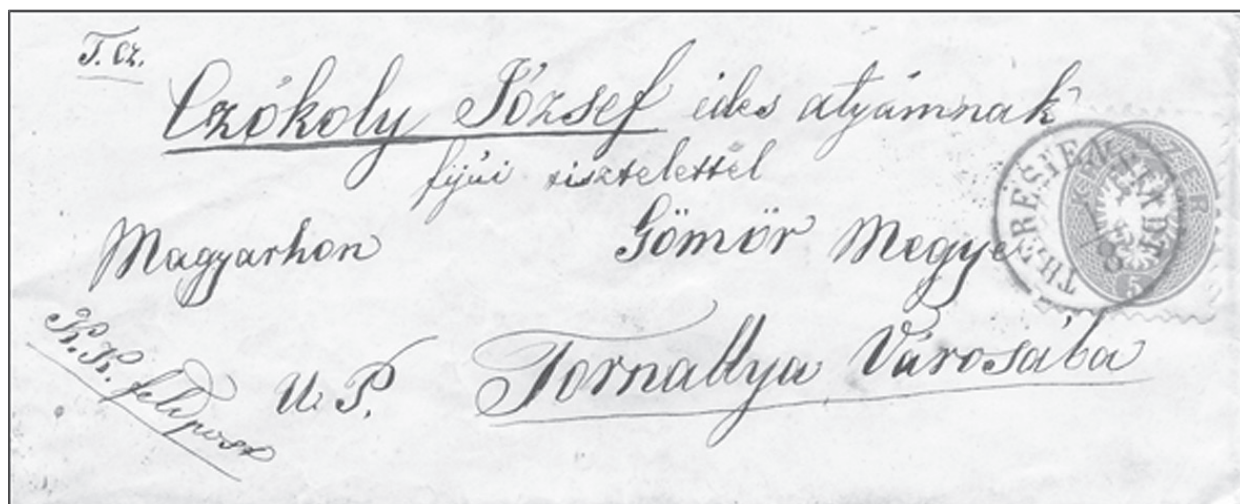 T. Cz.
Czókoly József édes atyámnak
fijúi tisztelettel
Magyarhon Gömör Megye
THERESIENSTADT
KREUZER
5
K. K. feldpost
U. P. Tornallya Városába